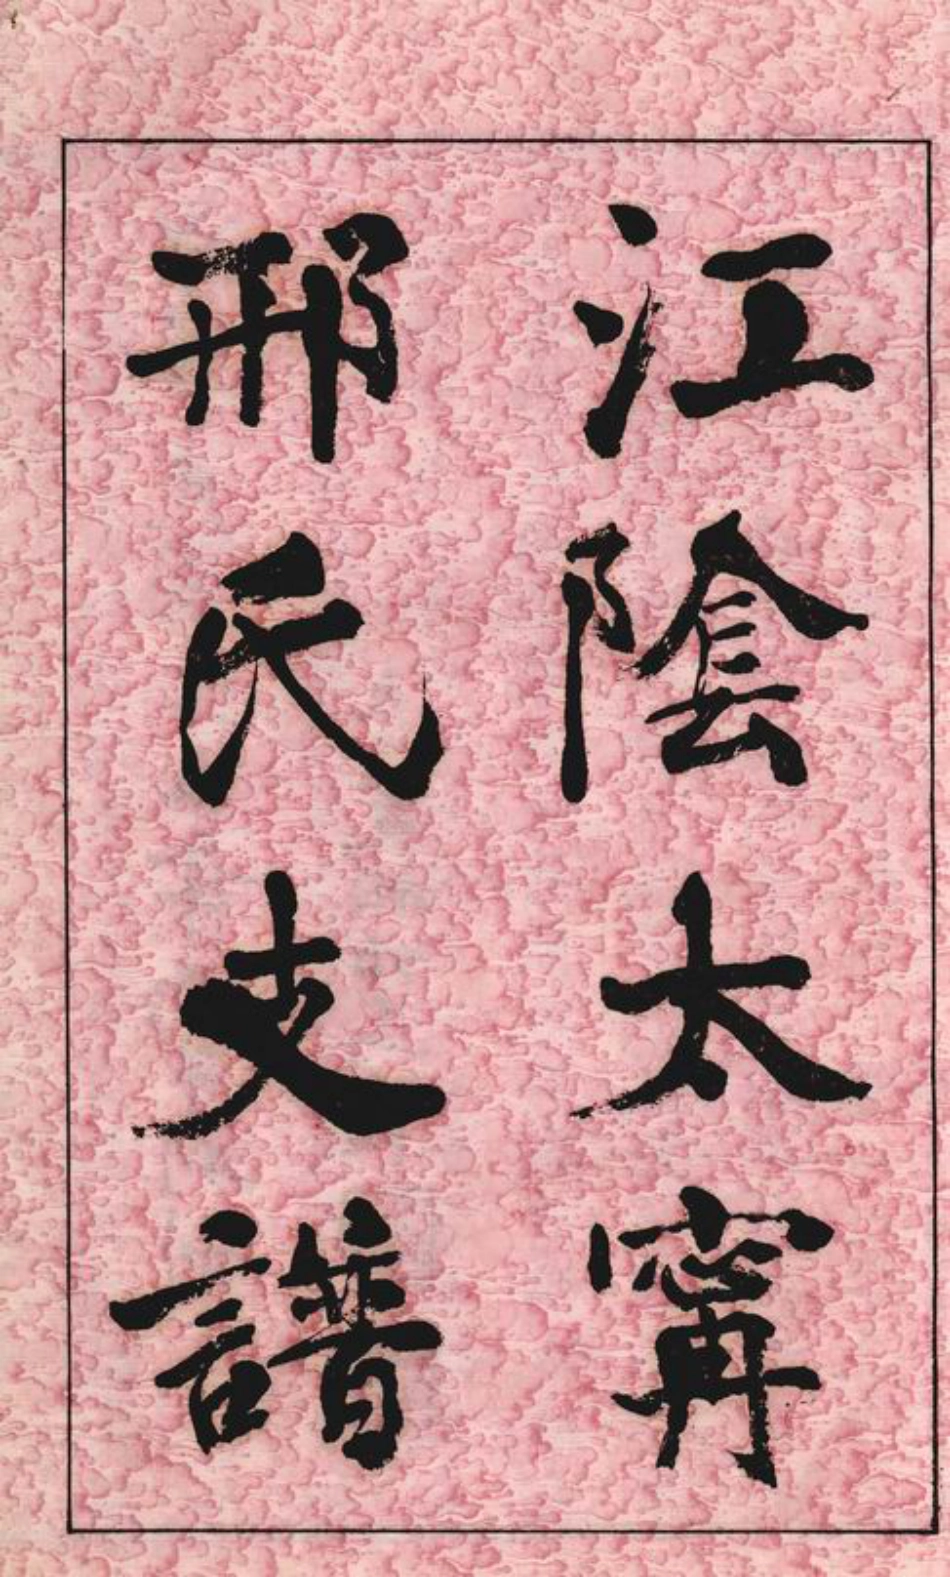 江陰太甯
邢氏支譜